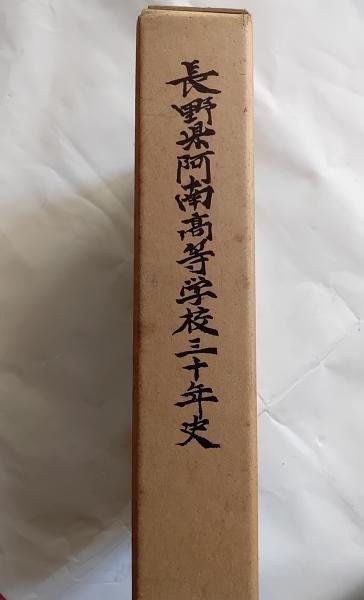 長野県阿南高等学校三十年史